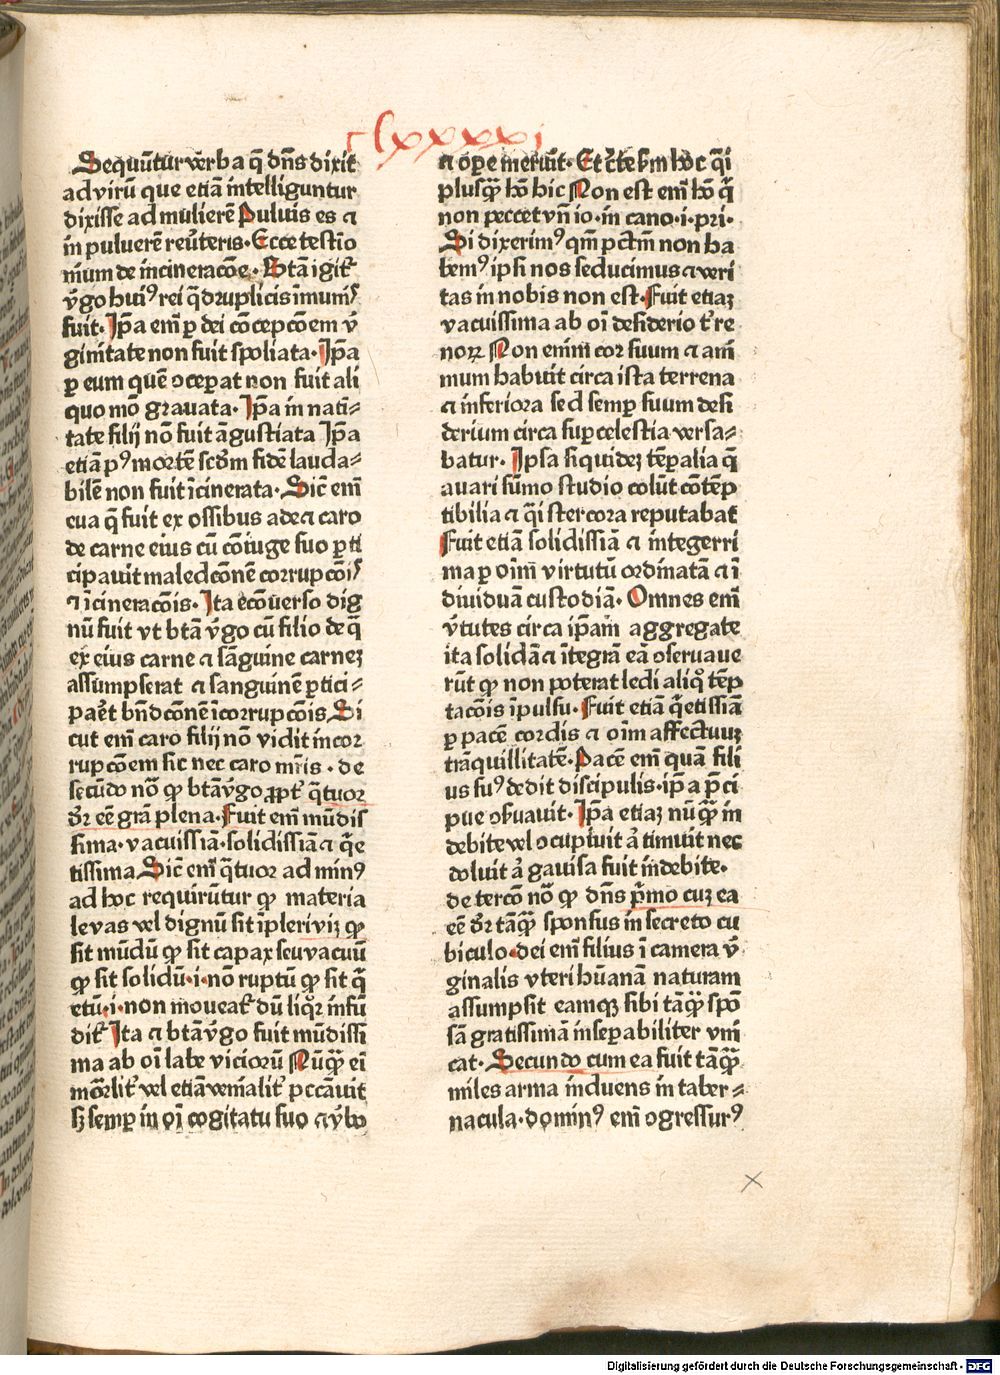 clxxxxi
Sequūtur v̄erba q̄ dn̄s dixit
ad virū que etiā intelliguntur
dixisse ad mulierē Puluis es ⁊
in puluerē reu̓teris· Ecce testio
nium de incineracōe· Btā igit᷑
v̓go hui⁹ rei q̄druplicis īmunis
fuit· Ip̄a em̄ ꝑ dei cōcepcōem v̓
ginitate non fuit spoliata· Ip̄a
ꝑ eum quē ɔceperat non fuit ali
quo mō grauata· Ip̄a in nati⸗
tate filij nō fuit āgustiata Ip̄a
etiā p⁹ mortē scd̄m fidē lauda⸗
bilē non fuit īcinerata· Sic̄ em̄
eua q̄ fuit ex ossibus ade ⁊ caro
de carne eius cū cōiuge suo ꝑti
cipauit maledcōnē corrupcōis
⁊ īcineracōis· Ita ecōuerso dig
nū fuit vt btā v̓go cū filio de q̄
ex eius carne ⁊ sāguine carneꝫ
assumpserat ⁊ sanguinē ꝑtici⸗
paēt bn̄dcōnē īcorrupcōis Si
cut em̄ caro filij nō vidit incor
rupcōem sic nec caro mr̄is · de
secūdo nō ꝙ btāv̓go ꝓpt᷑ q̄tuor
dr̄ eē grā plena· Fuit em̄ mūdis
sima· vacuissīa· solidissīa ⁊ q̄e
tissima Sic̄ em̄ q̄tuor ad min⁹
ad hoc requirūtur ꝙ materia
le vas vel dignū sit īpleri viꝫ ꝙ
sit mūdū ꝙ sit capax seu vacuū
ꝙ sit solidū·i·nō ruptū ꝙ sit q̄
etū·i·non moueat᷑ dū liq̄r infū
dit᷑ Ita ⁊ btāv̓go fuit mūdissi
ma ab oī labe viciorū Nūꝙ̄ ei
mōrlit᷑ vel etiā venialit᷑ pccāuit
sꝫ semꝑ in oī cogitatu suo ⁊ v̓bo
⁊ oꝑe meruit· Et c̄te sm̄ hoc q̄i
plusꝙ̄ hō hic Non est em̄ hō q̄
non peccet vn̄ io·in cano·i·pri·
Si dixerim⁹ qm̄ pctm̄ non ha
bem⁹ ipsi nos seducimus ⁊ veri
tas in nobis non est· Fuit etiaꝫ
vacuissima ab oī desiderio t᷑re
noꝝ Non enim cor suum ⁊ ani
mum habuit circa ista terrena
⁊ inferiora sed semꝑ suum desi
derium circa suꝑcelestia versa⸗
batur· Ipsa siquideꝫ tēꝑalia q̄
auari sūmo studio colūt cōtēp
tibilia ⁊ q̄i stercora reputabat
Fuit etiā solidissīa ⁊ integerri
ma ꝑ oīm virtutū ordinatā ⁊ ī
diuiduā custodiā· Omnes em̄
v̓tutes circa ip̄am aggregate
ita solidā ⁊ ītegrā eā ɔseruaue
rūt ꝙ non poterat ledi aliq̄ tēp
tacōis īpulsu· Fuit etiā q̄etissīa
ꝑ pacē cordis ⁊ oīm affectuuꝫ
trāquillitatē· Pacē em̄ quā fili
us su⁹ dedit discipulis· ip̄a p̄ci
pue ɔs̓uauit· Ip̄a etiaꝫ nūꝙ̄ in
debite vel ɔcupiuit a᷑ timuit nec
doluit a᷑ gauisa fuit indebite·
de tercō nō ꝙ dn̄s p̄mo cuꝫ ea
eē dr̄ tāꝙ̄ sponsus in secreto cu
biculo·dei em̄ filius ī camera v̓
ginalis vteri hūanā naturam
assumpsit eamqꝫ sibi tāꝙ̄ spō
sā gratissimā inseꝑabiliter vni
cat· Secundo cum ea fuit tāꝙ̄
miles arma induens in taber⸗
nacula·domin⁹ em̄ ɔgressur⁹
Digitalisierung gefördert durch die Deutsche Forschungsgemeinschaft - DFG